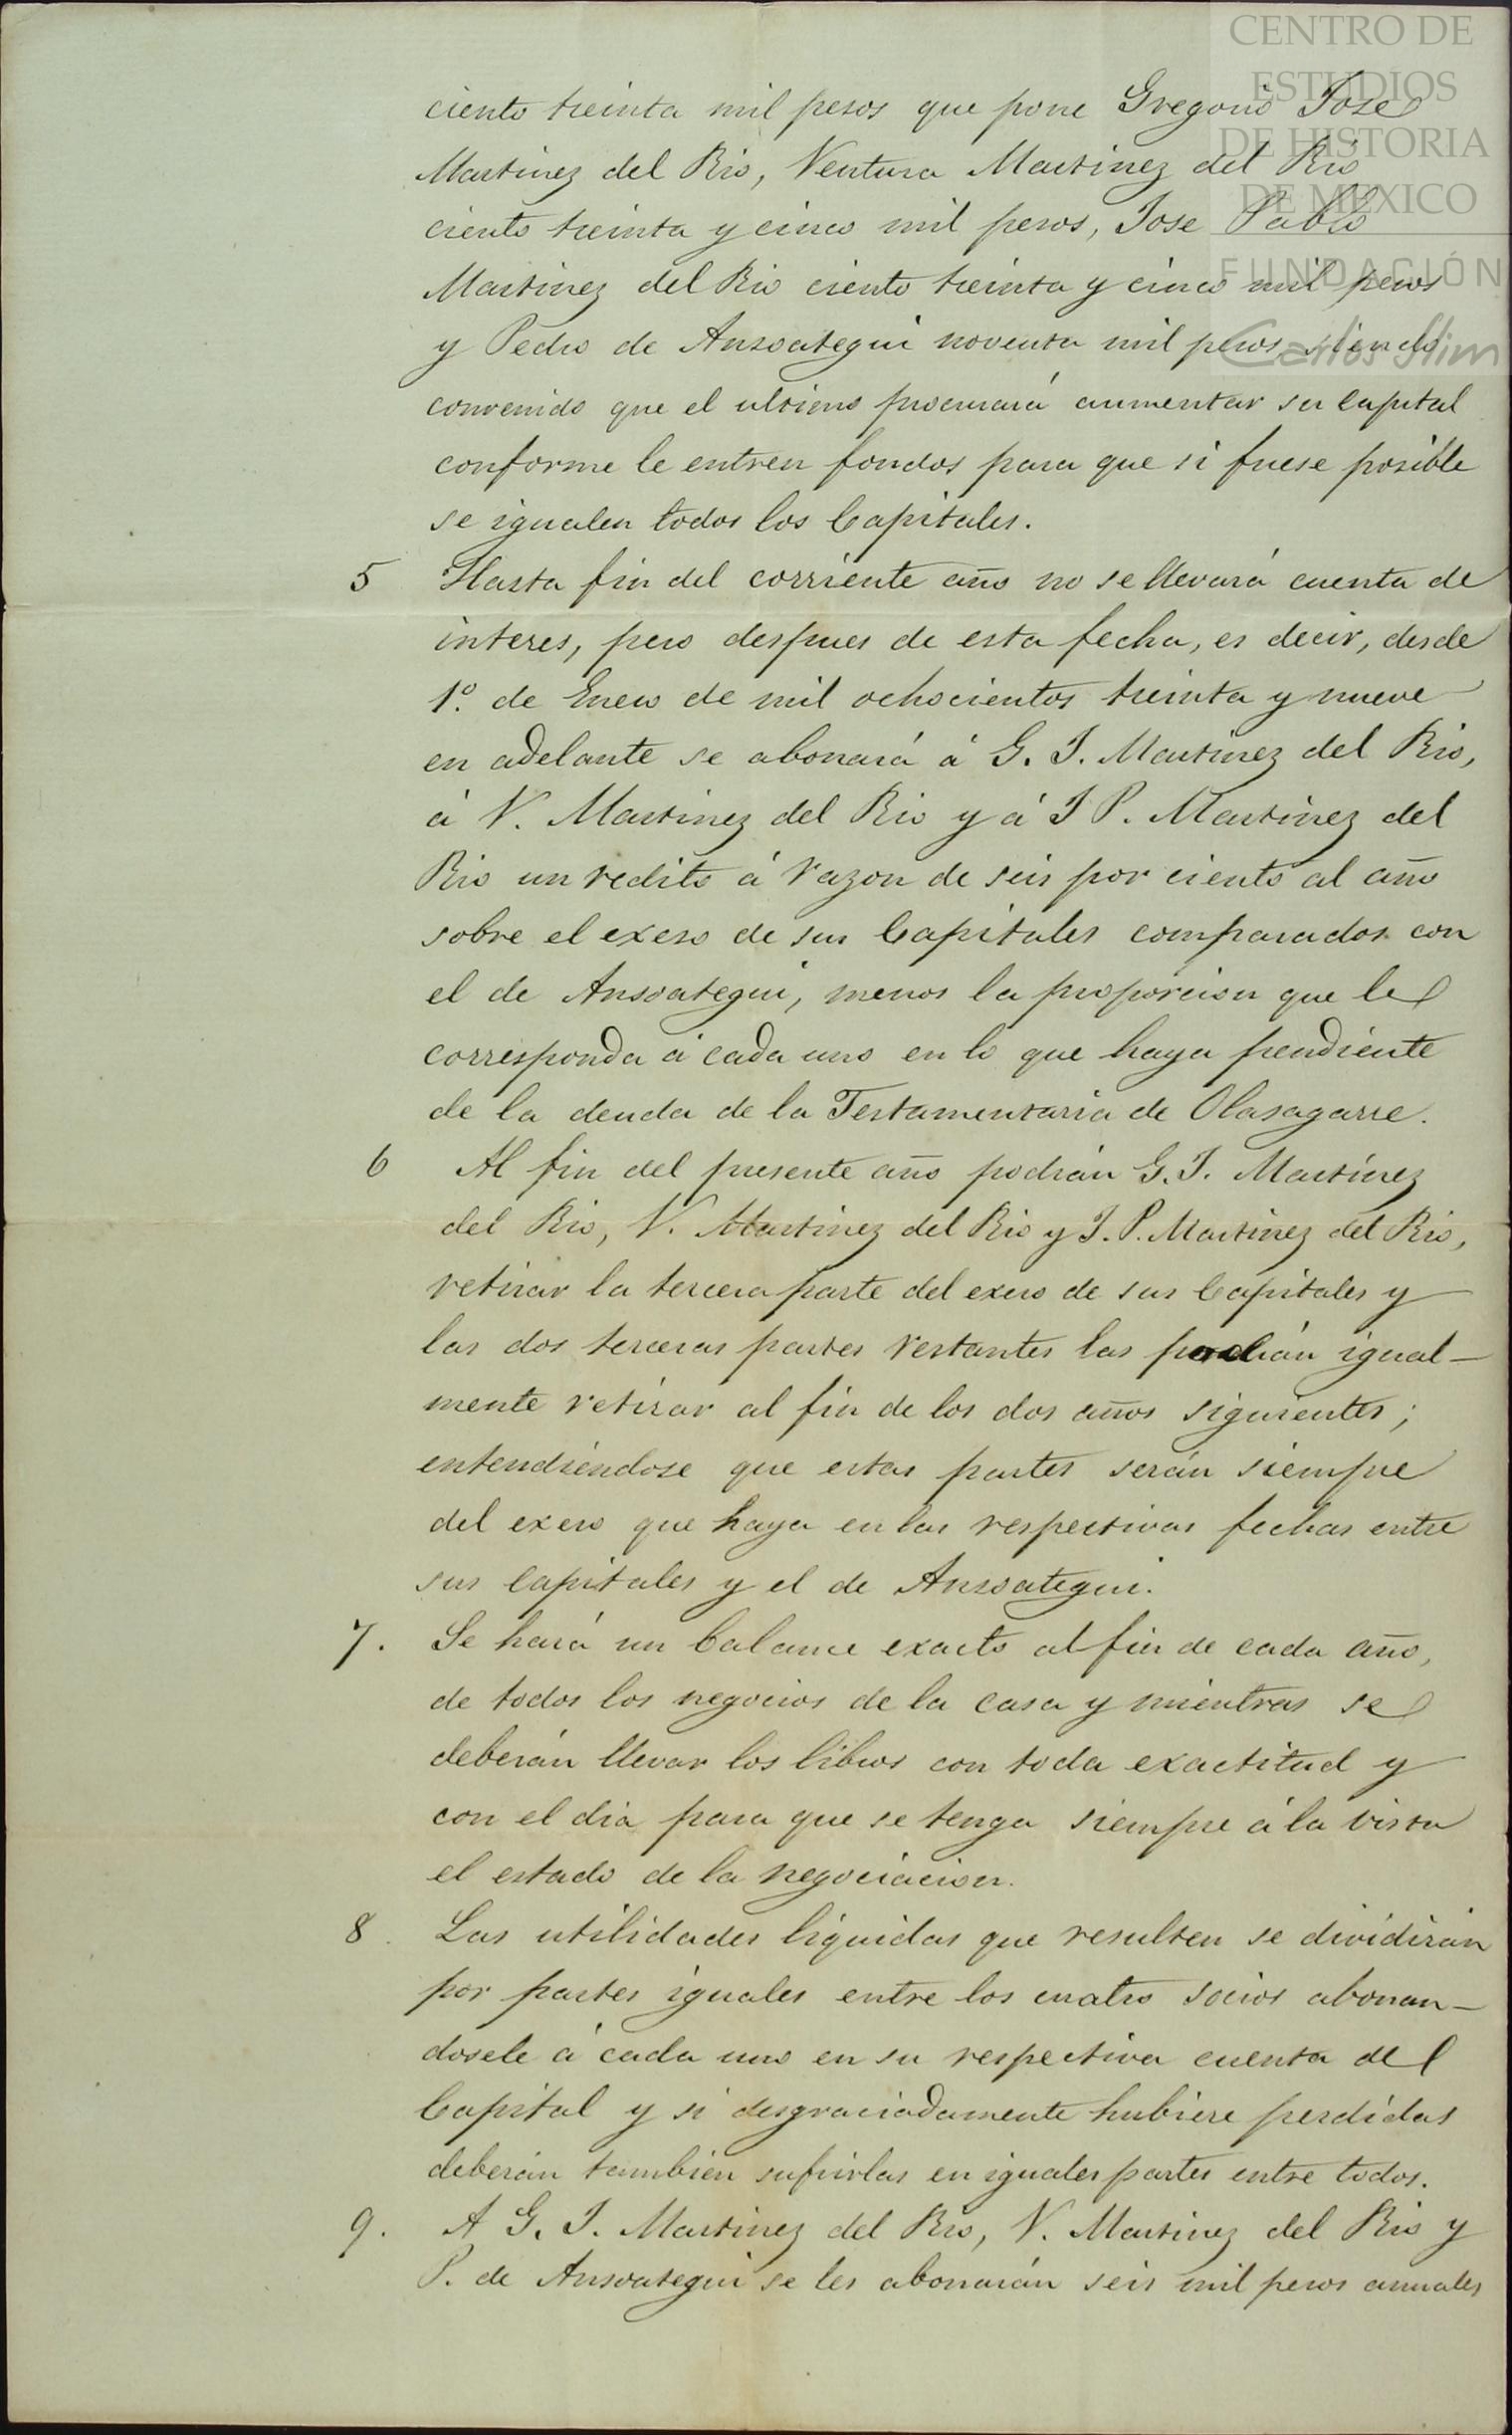 CENTRO DE
ESTUDIOS
DE HISTORIA
DE MEXICO
FUNDACIÓN
Carlos Slim
ciento treinta mil pesos que pone Gregorio Jose
Martinez del Rio, Ventura Martinez del Rio
ciento treinta y cinco mil pesos, Jose Pablo
Martinez del Rio ciento treinta y cinco mil pesos
y Pedro de Ansoategui noventa mil pesos siendo
convenido que el ultimo procurará aumentar su capital
conforme le entren fondos para que si fuese posible
se igualen todos los Capitales.
5 Hasta fin del corriente año no se llevará cuenta de
interes, pero despues de esta fecha, es decir, desde
1º. de Enero de mil ochocientos treinta y nueve
en adelante se abonará á G. J. Martinez del Rio,
á V. Martinez del Rio y á J P. Martinez del
Rio un redito á razon de seis por ciento al año
sobre el exeso de sus Capitales comparados con
el de Ansoategui, menos la proporcion que le
corresponda á cada uno en lo que haya pendiente
de la deuda de la Testamentaria de Olasagarre.
6 Al fin del presente año podrán G. J. Martinez
del Rio, V. Martinez del Rio y J. P. Martinez del Rio,
retirar la tercera parte del exeso de sus Capitales y
las dos terceras partes restantes las podrán igual-
mente retirar al fin de los dos años siguientes;
entendiéndose que estas partes serán siempre
del exeso que haya en las respectivas fechas entre
sus capitales y el de Ansoategui.
7. Se hará un balance exacto al fin de cada año,
de todos los negocios de la casa y mientras se
deberán llevar los libros con toda exactitud y
con el dia para que se tenga siempre á la vista
el estado de la negociacion.
8. Las utilidades liquidas que resulten se dividirán
por partes iguales entre los cuatro socios abonan-
dosele á cada uno en su respectiva cuenta de
Capital y si desgraciadamente hubiere perdidas
deberán tambien sufrirlas en iguales partes entre todos.
9. A G. J. Martinez del Rio, V. Martinez del Rio y
P. de Ansoategui se les abonarán seis mil pesos anuales